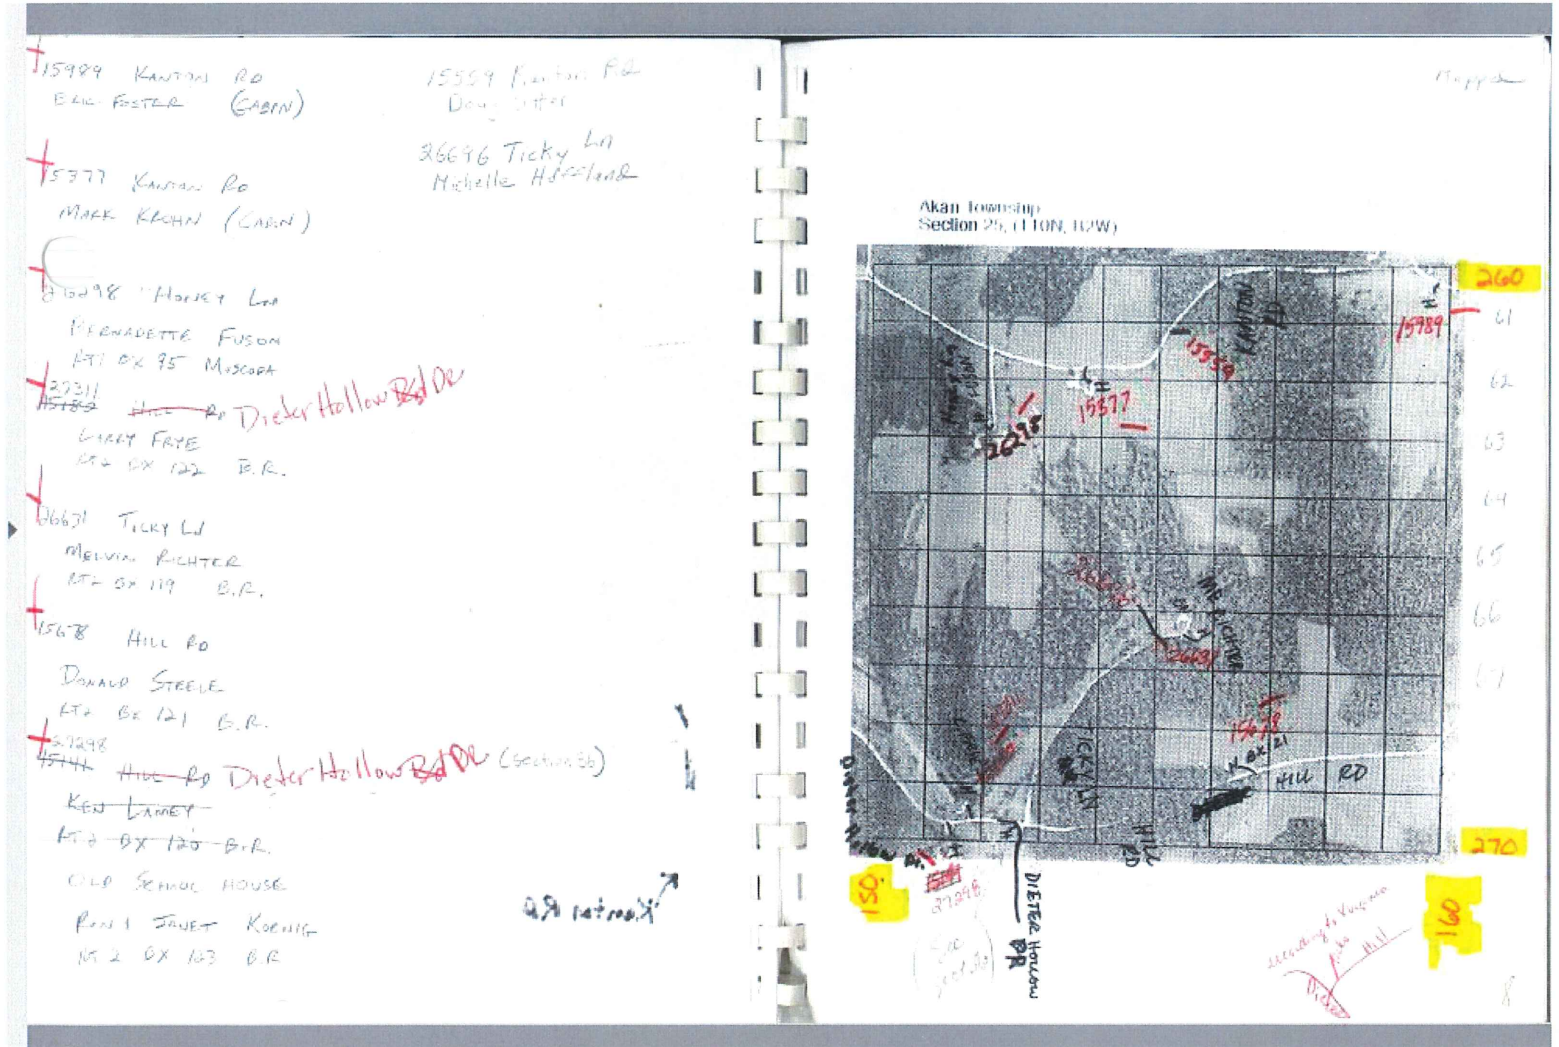 15989 KANTON RD
ERIC FOSTER (CABIN)
15377 KANTON RD
MARK KROHN (CABIN)
26298 HONEY LN
BERNADETTE FUSON
RT1 BX 95 MUSCODA
27311
HILL RD Dieter Hollow Rd DR
LARRY FRYE
RT2 BX 122 B.R.
26631 TICKY LN
MELVIN RICHTER
RT2 BX 119 B.R.
15678 HILL RD
DONALD STEELE
RT2 BX 121 B.R.
27298
15141 HILL RD Dieter Hollow Rd DR (Section 36)
KEN LAMEY
RT2 BX 120 B.R.
OLD SCHOOL HOUSE
RON & JANET KOENIG
RT 2 BX 123 B.R.
15559 Kanton Rd
Doug
26696 Ticky Ln
Michelle Hoffland
Kanton Rd
Mapped
Akan Township
Section 25, (T10N, R2W)
260
61
62
63
64
65
66
67
270
150
160
KANTON RD
15989
15559
H
15377
26298
MEL RICHTER
26631
15678
BX 121
HILL RD
TICKY LN
HILL RD
H
27298
DIETER HOLLOW DR
(See Sect. 36)
according to Virginia
Hill
Dieter
8